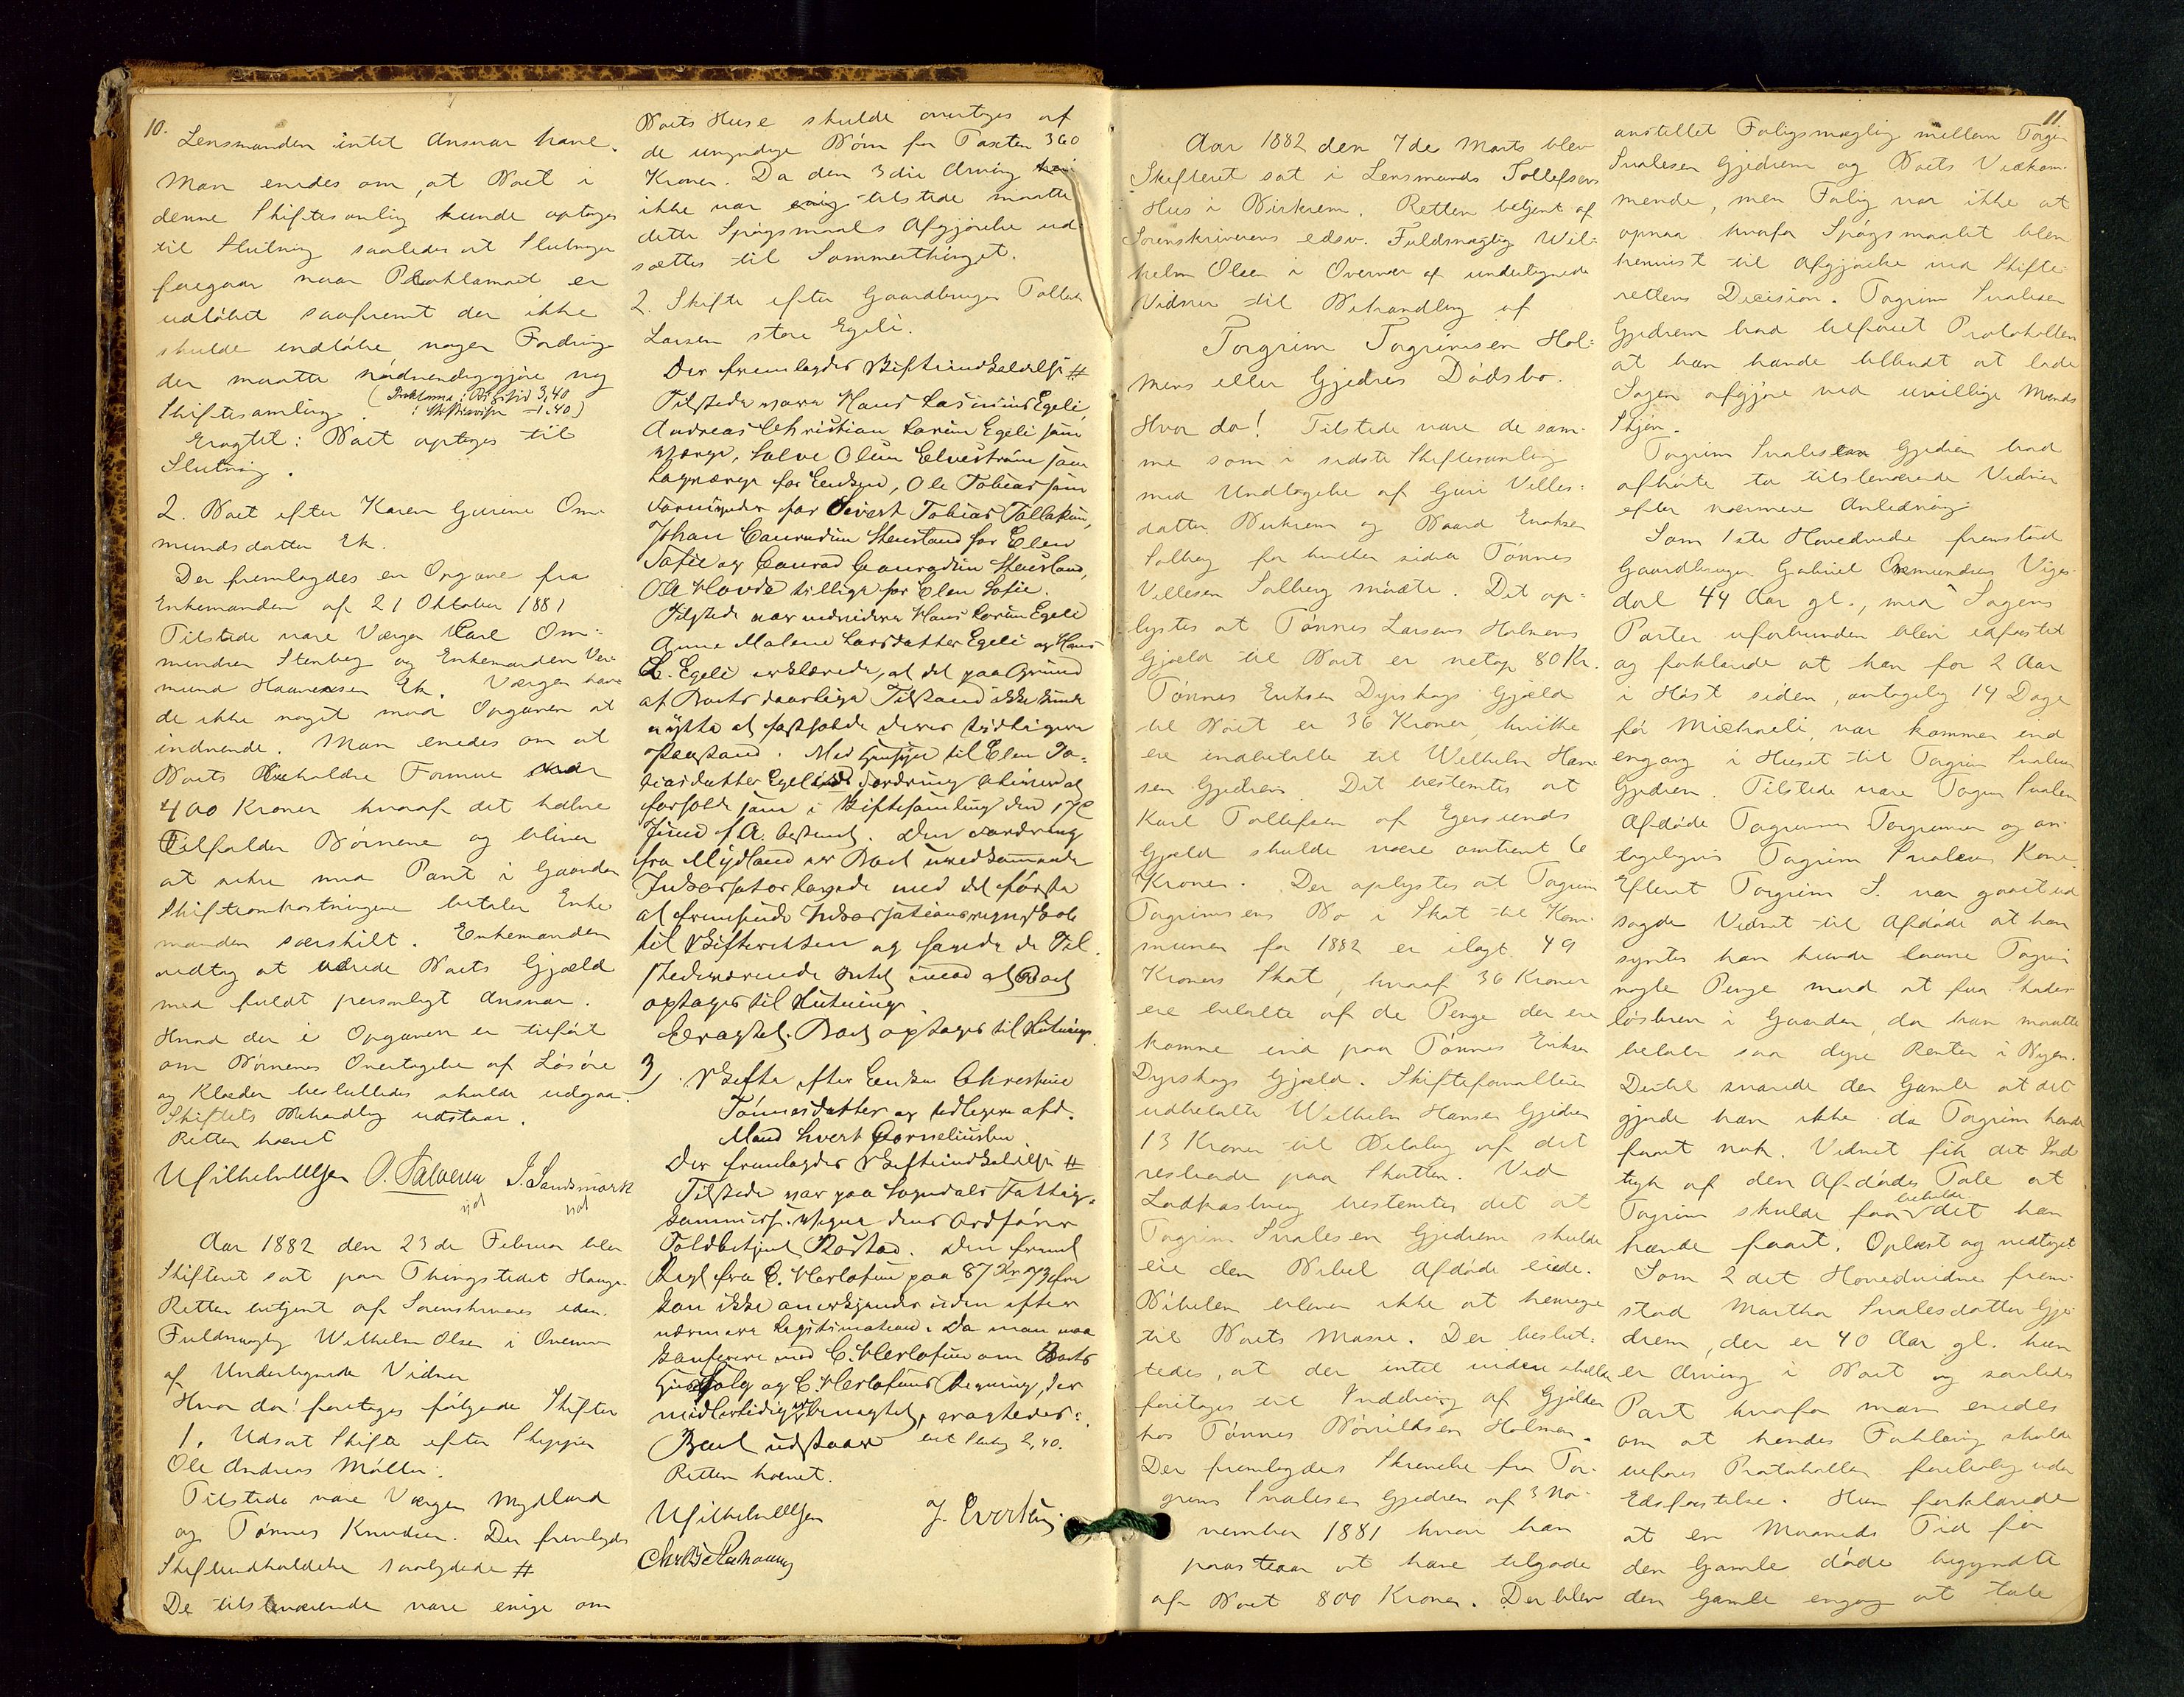 10.
Lensmanden intet Ansvar have.
Man enedes om, at Boet i
denne Skiftesamling kunde optages
til Slutning saaledes at Slutningen
foregaar naar Proklamaet er
udløbet saafremt der ikke
skulde indløbe nogen Fordring
der maatte nødvendiggjøre ny
Skiftesamling.
(Proklama: 3,40
1,40)
Eragtet: Boet optages til
Slutning.
2. Boet efter Karen Gurine Om-
mundsdatter Ek.
Der fremlagdes en Opgave fra
Enkemanden af 21 Oktober 1881
Tilstede vare Værgen Carl Om-
mundsen Stenberg og Enkemanden Ver-
mund Haavesen Ek. Værgen hav
de ikke noget mod Opgaven at
indvende. Man enedes om at
Boets Beholdne Formue var
400 Kroner hvoraf det halve
tilfalder Børnene og bliver
at sikre med Pant i Gaarden
Skifteomkostningerne betaler Enke-
manden særskilt. Enkemanden
vedtog at udrede Boets Gjæld
med fuldt personligt Ansvar.
Hvad der i Opgaven er tilført
om Børnenes Overtagelse af Løsøre
og Klæder besluttedes skulde udgaa.
Skiftets Behandling udstaar.
Retten hævet
Wilhelm Olsen O. Salvesen J. Sandsmark
Aar 1882 den 23de Februar blev
Skifteret sat paa Thingstedet Hauge.
Retten betjent af Sorenskriverens edsv.
Fuldmægtig Wilhelm Olsen i Overvær
af Undertegnede Vidner
Hvor da! foretages følgende Skifter
1. Udsat Skifte efter Skipper
Ole Andreas Møller.
Tilstede vare Værgen Mydland
og Tønnes Knudsen. Der fremlagdes
Skifteindkaldelse saalydende #
De tilstedeværende vare enige om
Boets Huse skulde overtages af
de umyndige Børn for Taxten 360
Kroner. Da den 3die Arving
ikke var tilstede maatte
dette Spørgsmaals Afgjørelse ud-
sættes til Sommerthinget.
2. Skifte efter Gaardbruger Tollak
Larsen store Egeli.
Der fremlagdes Skifteindkaldelse #
Tilstede vare Hans Larsen Egeli,
Andreas Christian Larsen Egeli som
Værge, Salve Olsen Elvestrøm som
Lagværge for Enken, Ole Tobias som
Formynder for Sivert Tobias Tollaksen,
Johan Conradsen Stensland for Elen
Sofie og Conrad Conradsen Stensland,
Ole Hovde tillige for Elen Sofie.
Tilstede var endvidere Hans Larsen Egeli
Anne Malene Larsdatter Egeli og Hans
L. Egeli erklærede, at det paa Grund
af Boets daarlige Tilstand ikke kunde
nytte at fastholde deres tidligere
Paastand. Med Hensyn til Elen To-
biasdatter Egelis Fordring bliver at
forholde som i Skiftesamling den 17de
Juni f. A. bestemt. Den Fordring
fra Mydland er Boet uvedkommende
Inkassator lovede med det første
at fremsende Inkassationsregnskab
til Skifteretten og havde de Til-
stedeværende Intet imod at Boet
optages til Slutning.
Eragtet. Boet optages til Slutning.
3, Skifte efter Enke Christine
Tønnesdatter og tidligere afd.
Mand Sivert Corneliussen.
Der fremlagdes Skifteindkaldelse #
Tilstede var paa Sogndals Fattig-
kommiss. Vegne dens Ordfører
Toldbetjent Røstad. Den freml
Regn fra C. Herlofsen paa 87 Kr 73 Øre
kan ikke anerkjendes uden efter
nærmere Legitimation. Da man maa
konferere med C. Herlofsen om Boets
Huusalg og C. Herlofsens Regning, der
midlertidig er benægtet, eragtedes:
Boet udstaar 2,40.
Retten hævet.
Wilhelm Olsen J. Evertsen
11
Aar 1882 den 7de Marts blev
Skifteret sat i Lensmand Tollefsens
Hus i Birkrem. Retten betjent af
Sorenskriverens edsv. Fuldmægtig Wil-
helm Olsen i Overvær af undertegnede
Vidner til Behandling af
Torgrim Torgrimsen Hol-
mens eller Gjedres Dødsbo.
Hvor da! Tilstede vare de sam-
me som i sidste Skiftesamling
med Undtagelse af Guri Villes-
datter Birkrem og Baard Eriksen
Solberg for hvilken sidste Tønnes
Villesen Solberg mødte. Det op-
lystes at Tønnes Larsens Holmens
Gjæld til Boet er netop 80 Kr.
Tønnes Eriksen Dyrskogs Gjæld
til Boet er 36 Kroner, hvilke
ere indbetalte til Wilhelm Han-
sen Gjedrem. Det bestemtes at
Karl Tollefsen af Egersunds
Gjæld skulde være omtrent 6
Kroner. Der oplystes at Torgrim
Torgrimsens Bo i Skat til Kom-
munen for 1882 er ilagt 49
Kroners Skat, hvoraf 36 Kroner
ere betalte af de Penge der ere
komne ind paa Tønnes Eriksen
Dyrskogs Gjæld. Skifteforvalteren
udbetalte Wilhelm Hansen Gjedrem
13 Kroner til Betaling af det
resterende paa Skatten. Ved
Lodkastning bestemtes det at
Torgrim Svalesen Gjedrem skulde
eie den Bibel Afdøde eiede.
Bibelen bliver ikke at henregne
til Boets Masse. Der beslut-
tedes, at der intet videre skulde
foretages til Inddrivning af Gjælden
hos Tønnes Børrildsen Holmen.
Der fremlagdes Skrivelse fra Tor-
grim Svalesen Gjedrem af 3 No-
vember 1881 hvori han
paastaar at have tilgode
af Boet 800 Kroner. Der blev
anstillet Forligsmægling mellem Torgrim
Svalesen Gjedrem og Boets Vedkom-
mende, men Forlig var ikke at
opnaa hvorfor Spørgsmaalet blev
henvist til Afgjørelse ved Skifte-
rettens Decision. Torgrim Svalesen
Gjedrem bad tilføiet Protokollen
at han havde tilbudt at lade
Sagen afgjøre ved uvillige Mænds
Skjøn.
Torgrim Svalesen Gjedrem bad
afhørte to tilstedeværende Vidner
efter nærmere Anledning
Som 1ste Hovedvidne fremstod
Gaardbruger Gabriel Osmundsen Viges-
dal 44 Aar gl., med Sagens
Parter uforbunden blev edfæstet
og forklarede at han for 2 Aar
i Høst siden, antagelig 14 Dage
før Michaeli, var kommen ind
engang i Huset til Torgrim Svalesen
Gjedrem. Tilstede vare Torgrim Svalesen
Afdøde Torgrimmer Torgrimsen og an-
tageligvis Torgrim Svalesens Kone.
Efterat Torgrim S. var gaaet ud
sagde Vidnet til Afdøde at han
syntes han kunde laane Torgrim
nogle Penge mod at faa Skades-
løsbrev i Gaarden, da han maatte
betale saa dyre Renter i Byen.
Dertil svarede den Gamle at det
gjorde han ikke da Torgrim havde
faaet nok. Vidnet fik det Ind-
tryk af den Afdødes Tale at
Torgrim skulde faa beholde det han
havde faaet. Oplæst og vedtaget
Som 2det Hovedvidne frem-
stod Martha Svalesdatter Gje-
drem, der er 40 Aar gl. hun
er Arving i Boet og saaledes
Part hvorfor man enedes
om at hendes Forklaring skulde
tilføres Protokollen foreløbig uden
Edsfæstelse. Hun forklarede
at en Maaneds Tid før
den Gamle døde begyndte
den Gamle engang at tale